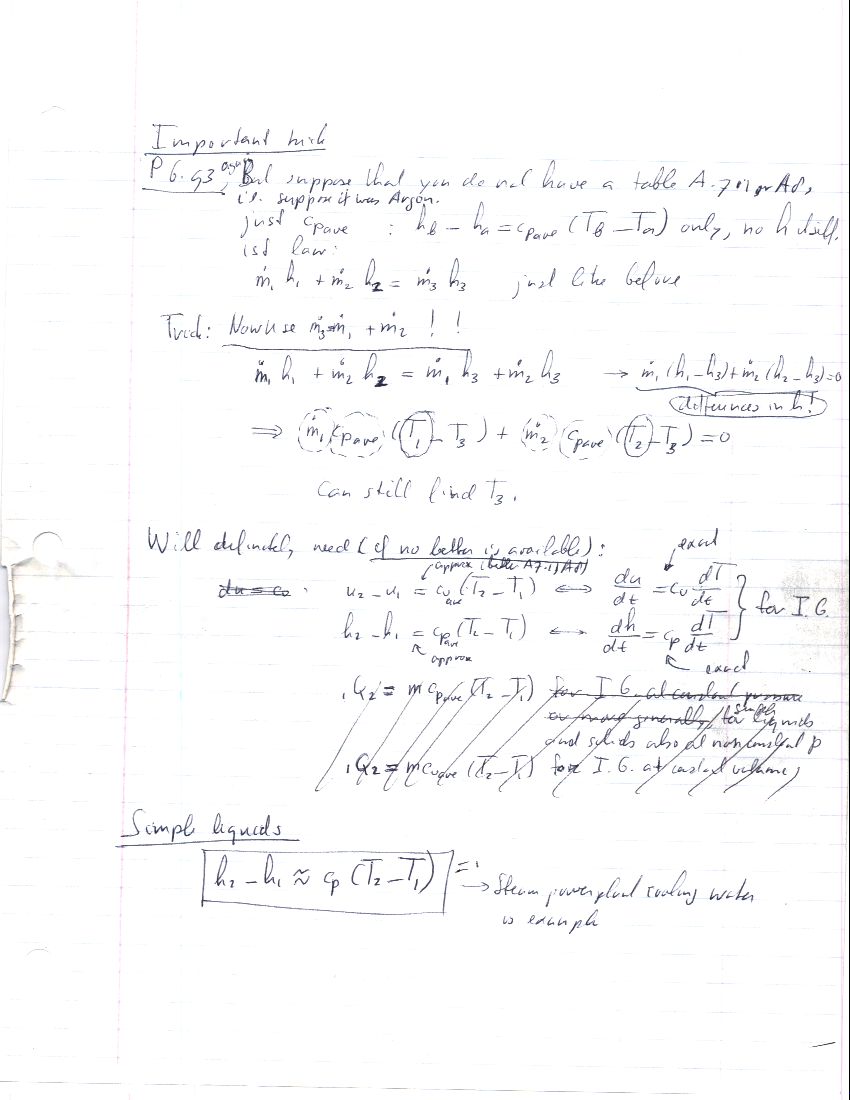 Important trick
P 6.93 again, But suppose that you do not have a table A.7.1 or A8,
i.e. suppose it was Argon.
just cpave : hB − ha = cpave (TB − Ta) only, no h itself.
1st law:
ṁ1 h1 + ṁ2 h2 = ṁ3 h3 just like before
Trick: Now use ṁ3 = ṁ1 + ṁ2 ! !
ṁ1 h1 + ṁ2 h2 = ṁ1 h3 + ṁ2 h3 → ṁ1 (h1 − h3) + ṁ2 (h2 − h3) = 0
differences in h!
⇒ ṁ1 cpave (T1 − T3) + ṁ2 cpave (T2 − T3) = 0
Can still find T3.
Will definitely need (if no better is available):
approx (better A7.1, A8) exact
du = cv u2 − u1 = cv ave (T2 − T1) ⟺ du/dt = cv dT/dt
for I.G.
h2 − h1 = cp ave (T2 − T1) ⟷ dh/dt = cp dT/dt
approx exact
1Q2 = m cpave (T2 − T1) for I.G. at constant pressure
or more generally, for simple liquids
and solids also at nonconstant p
1Q2 = m cvave (T2 − T1) for I.G. at constant volume,
Simple liquids
h2 − h1 ≈ cp (T2 − T1)
→ Steam powerplant cooling water
is example